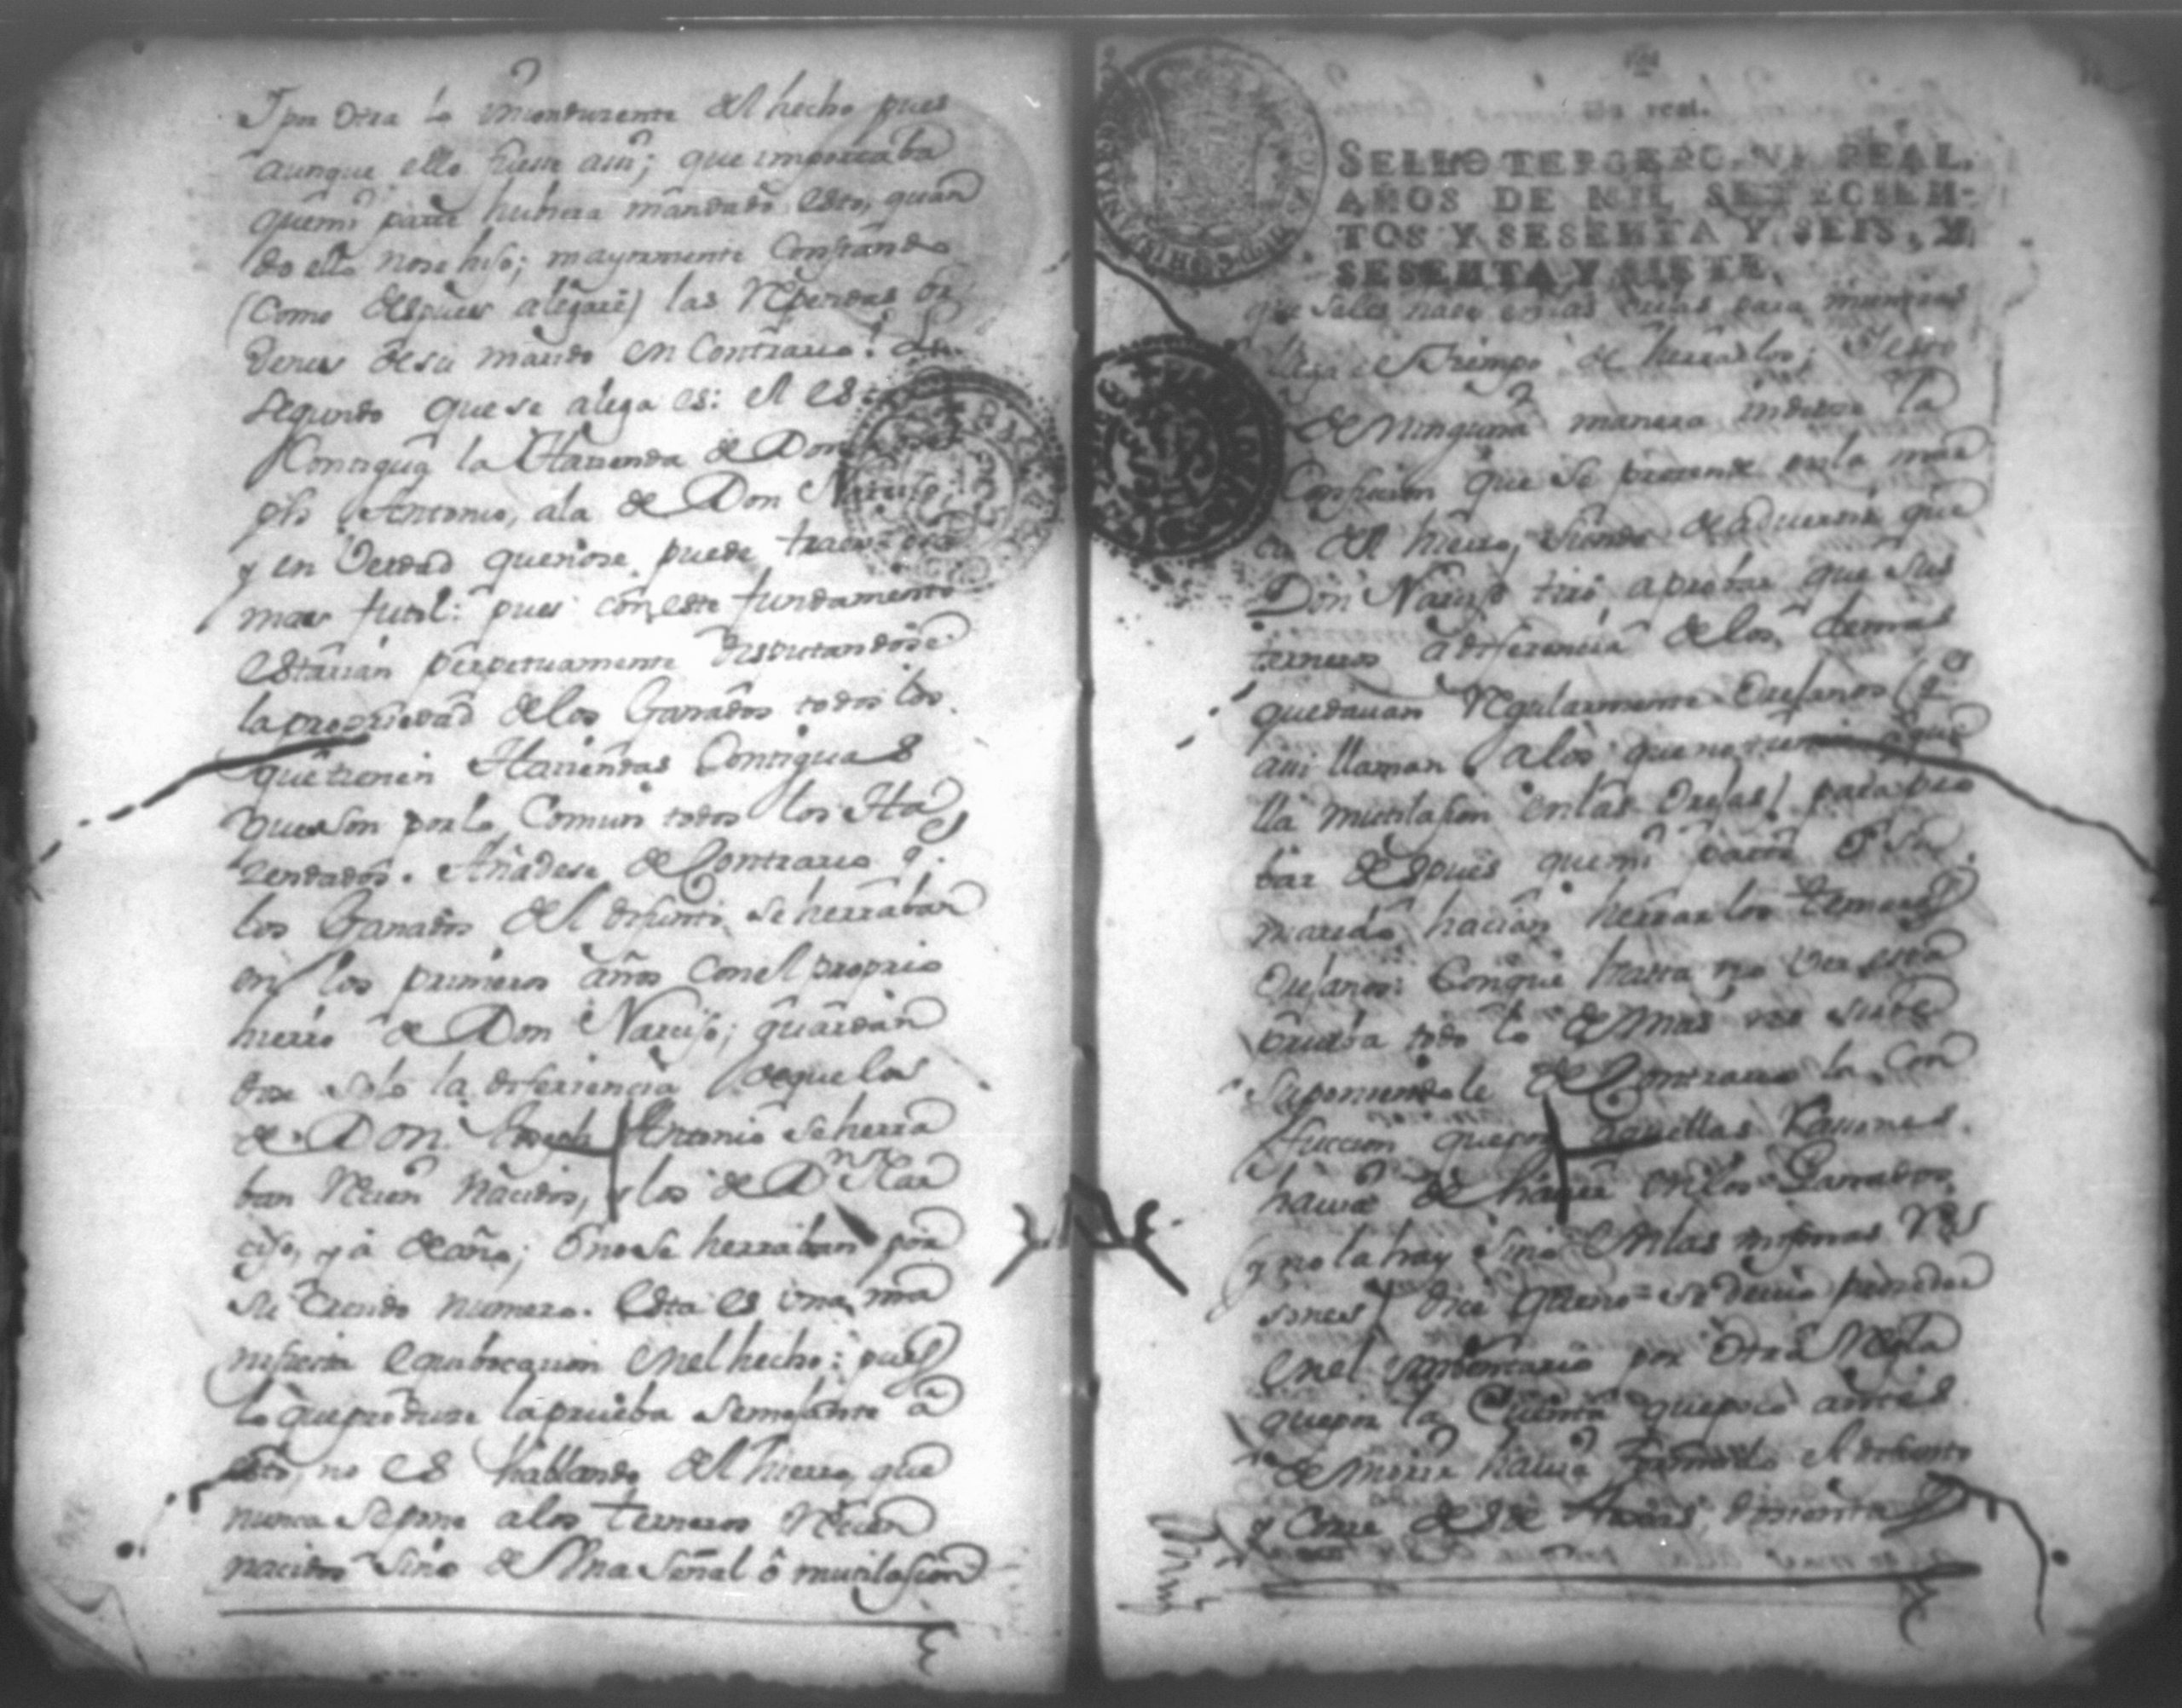 Y por otra lo inconducente del hecho pues
aunque ello fuese assi; que importaba
quemi parte hubiera mandado esto, quan
do ello nose hiso; mayormente Constando
(Como despues alegaré) las repetidas or
denes desu marido en Contrario. Lo
Segundo quese alega es: el estar
Contigua la Hazienda de Don Jo
ph Antonio, ala de Don Narciso
y en Verdad quenose puede traer cosa
mas futil: pues con este fundamento
estarian perpetuamente disputandose
la propriedad delos Ganados todos los
quetienen Haziendas Contiguas
queson porlo Comun todos los Ha
zendados. Añadese de Contrario q.e
los Ganados del difunto se herraban
en los primeros años Conel proprio
hierro de Don Narciso; guardan
dose solo la diferiencia dequelos
de Don Joseph Antonio seherra
ban recien nacidos, y los de Dn Nar
ciso, ya deaño; ô nose herraban por
su crecido numero. Esta es una ma
nifiesta equibocacion enelhecho: pues
lo queproduce laprueba semejante â
esto, no es hablando del hierro, que
nunca sepone alos terneros recien
nacidos sino de una Señal ô mutilasion
Un real.
SELLO TERCERO, VN REAL,
AÑOS DE MIL SETECIEN-
TOS Y SESENTA Y SEIS, Y
SESENTA Y SIETE.
que seles hace enlas orejas para mientras
llega el tiempo de herrarlos; Y esto
de ninguna manera induce la
Confusion que se pretende enla mar
ca del hierro, siendo deadvertir que
Don Narciso tiró aprobar que sus
terneros adiferencia delos demas
quedavan regularmente Orejanos (q.e
assi llaman alos quenotienen aque
lla mutilasion enlas Orejas) para pro
bar despues quemi parte ô su
marido hacian herrar los terneros
Orejanos: Conque hasta no ver esta
prueba todo lo demas no sirve
Suponiendole de Contrario la Con
fuccion quepor aquellas Razones
havia de haver enlos Ganados
y no la hay sino enlas mismas ra
sones) dice queno se devia proceder
enel imbentario por otra regla
quepor la Cuenta quepoco antes
de morir havia formado el difunto
y Corre desde fojas, doscientas